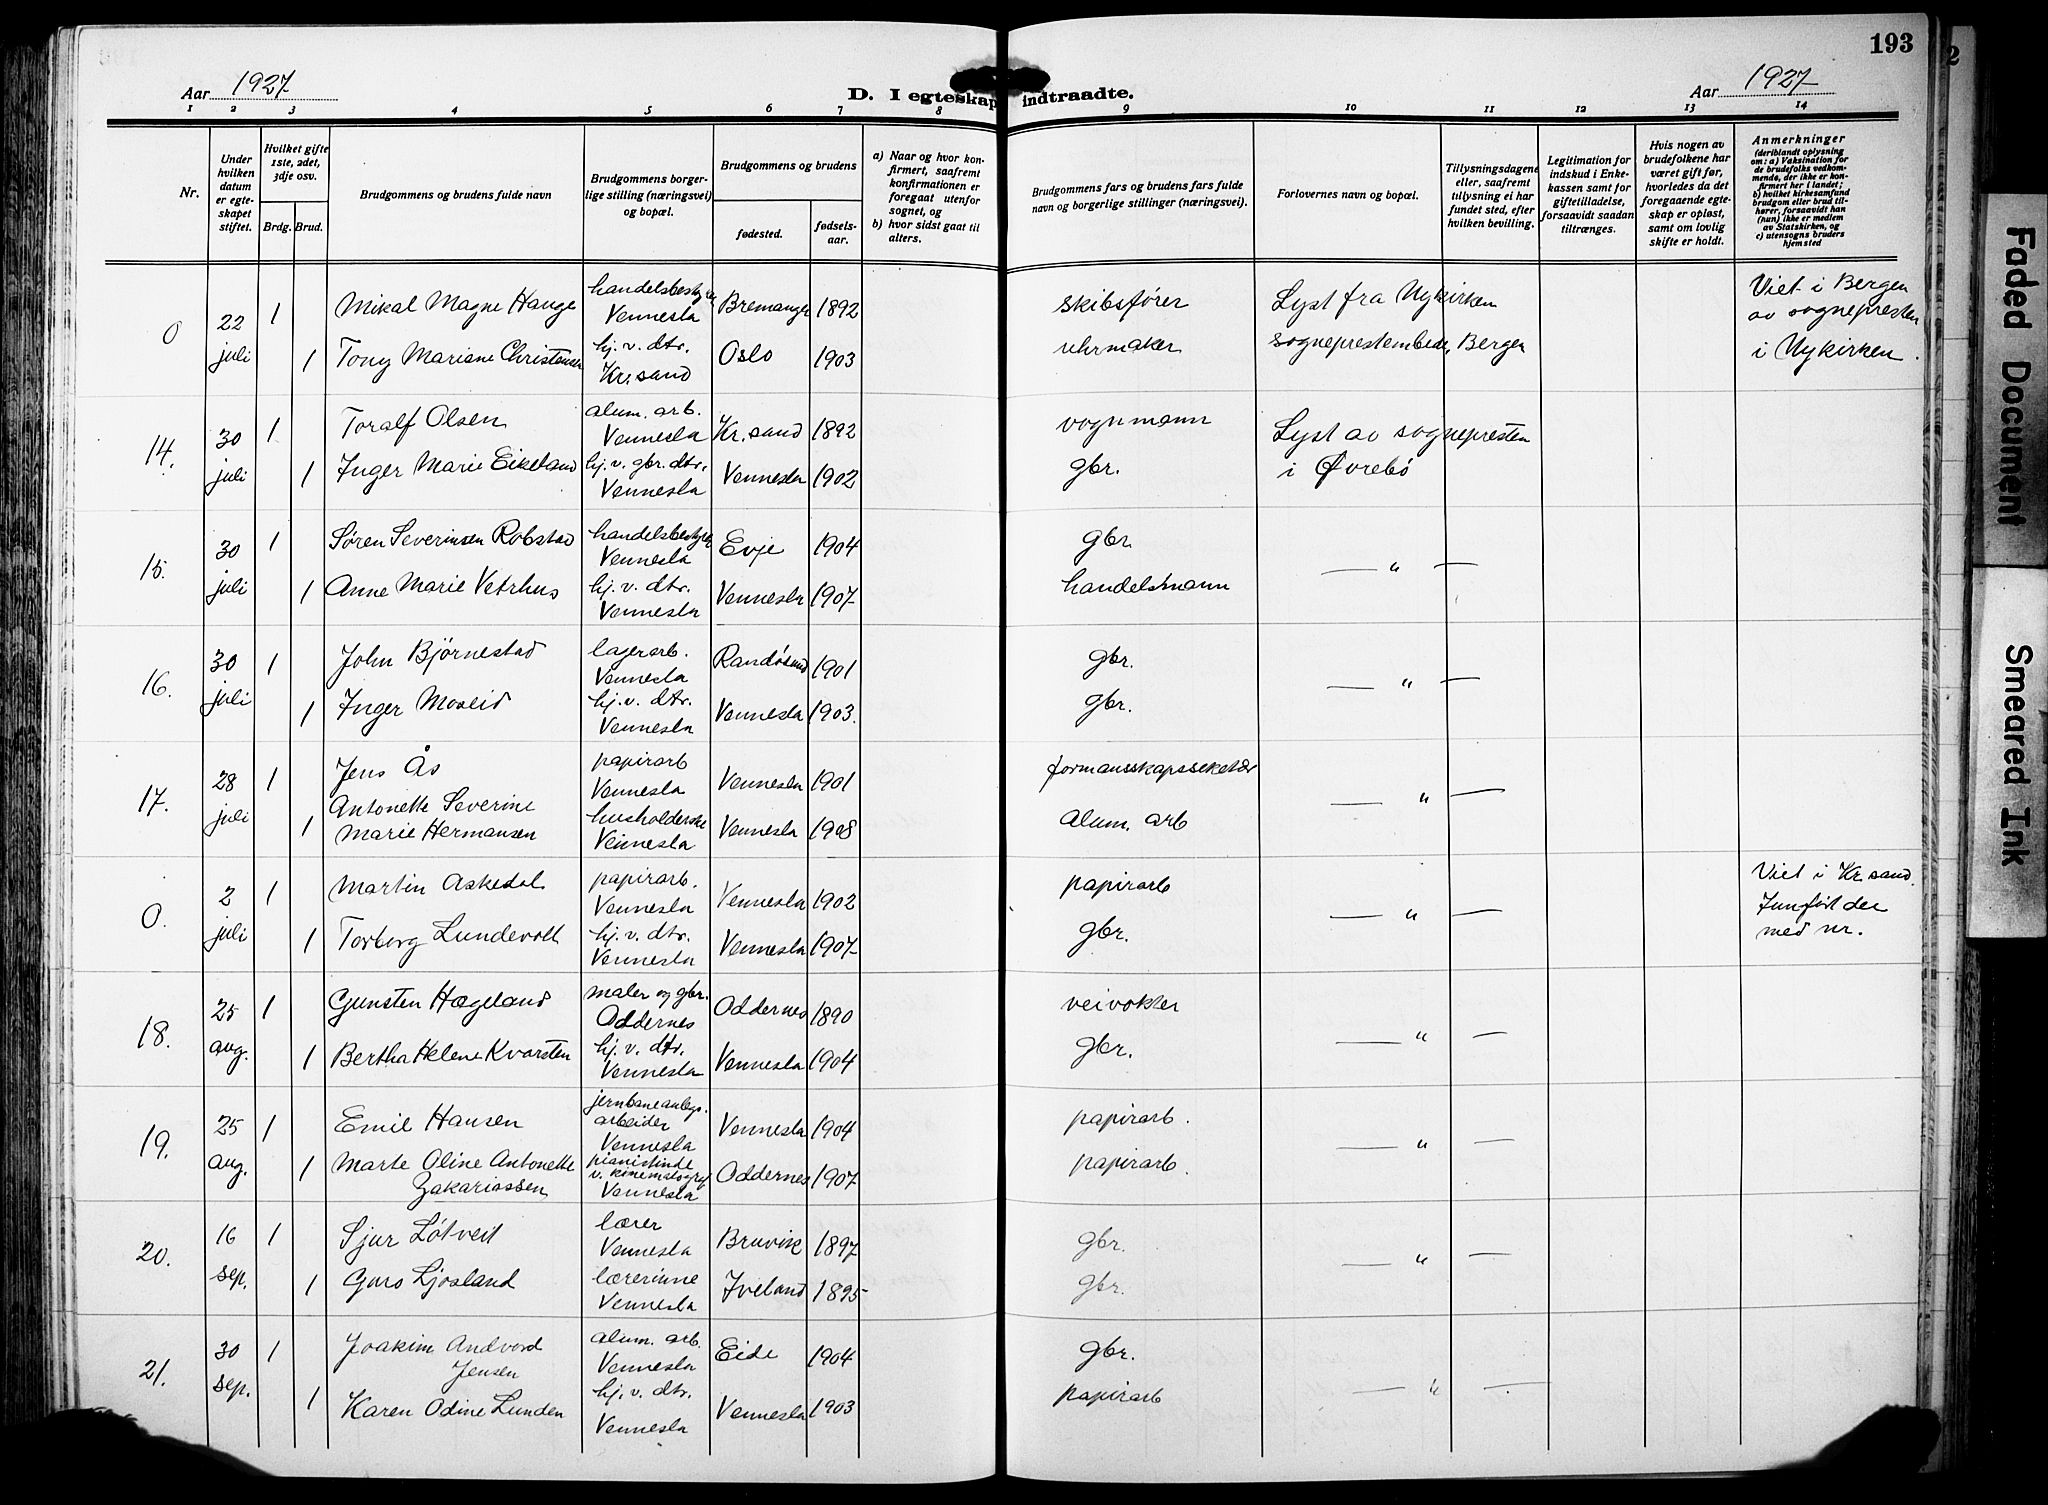 193
Aar 1927
D. I egteskap indtraadte.
Aar 1927
1 2 3 4 5 6 7 8 9 10 11 12 13 14
Nr.
Under hvilken datum er egte-skapet stiftet.
Hvilket gifte 1ste, 2det, 3dje osv.
Brdg. Brud.
Brudgommens og brudens fulde navn
Brudgommens borger-lige stilling (næringsvei) og bopæl.
Brudgommens og brudens
fødested.
fødsels-aar.
a) Naar og hvor kon-firmert, saafremt konfirmationen er foregaat utenfor sognet, og
b) hvor sidst gaat til alters.
Brudgommens fars og brudens fars fulde navn og borgerlige stillinger (næringsvei).
Forlovernes navn og bopæl.
Tillysningsdagene eller, saafremt tillysning ei har fundet sted, efter hvilken bevilling.
Legitimation for indskud i Enke-kassen samt for giftetilladelse, forsaavidt saadan tiltrænges.
Hvis nogen av brudefolkene har været gift før, hvorledes da det foregaaende egte-skap er opløst, samt om lovlig skifte er holdt.
Anmerkninger
(deriblandt oplysning om: a) Vaksination for de brudefolks vedkom-mende, der ikke er kon-firmert her i landet;
b) hvilket kirkesamfund brudgom eller brud til-hører, forsaavidt han (hun) ikke er medlem av Statskirken, og
c) utensogns bruders hjemsted
0 22 juli 1 Mikal Magne Hauge handelsbestyrer Vennesla Bremanger 1892 skibsfører Lyst fra Nykirken Viet i Bergen av sognepresten
1 Tony Mariane Christensen hj. v. dtr. Kr.sand Oslo 1903 uhrmaker sogneprestembede, Bergen i Nykirken.
14. 30 juli 1 Toralf Olsen alum. arb. Vennesla Kr.sand 1892 vognmann Lyst av sognepresten
1 Inger Marie Eikeland hj. v. gbr. dtr. Vennesla Vennesla 1902 gbr. i Øvrebø
15. 30 juli 1 Søren Severinsen Robstad handelsbestyrer Vennesla Evje 1904 gbr.
1 Anne Marie Vetrhus hj. v. dtr. Vennesla Vennesla 1907 handelsmann — " —
16. 30 juli 1 John Bjørnestad lagerarb. Vennesla Randøsund 1901 gbr.
1 Inger Moseid hj. v. dtr. Vennesla Vennesla 1903. gbr. — " —
17. 28 juli 1 Jens Ås papirarb Vennesla Vennesla 1901 formansskapssekretær
1 Antonette Severine Marie Hermansen husholderske Vennesla Vennesla 1908 alum. arb — " —
0. 2 juli 1 Martin Askedal papirarb. Vennesla Vennesla 1902 papirarb Viet i Kr.sand. Innført der
1 Torborg Lundevold hj. v. dtr. Vennesla Vennesla 1907 gbr. — " — med nr.
18. 25 aug. 1 Gunsten Hægeland maler og gbr. Oddernes Oddernes 1890 veivokter
1 Bertha Helene Kvarsten hj. v. dtr. Vennesla Vennesla 1904 gbr. — " —
19. 25 aug. 1 Emil Hansen jernbaneanlegs. arbeider Vennesla Vennesla 1904 papirarb.
1 Marte Oline Antonette Zakariassen pianistinde v. kinematograf Vennesla Oddernes 1907 papirarb. — " —
20. 16 sep. 1 Sjur Løtveit lærer Vennesla Bruvik 1897 gbr.
1 Guro Ljosland lærerinne Vennesla Iveland 1895 gbr. — " —
21. 30 sep. 1 Joakim Andvord Jensen alum. arb. Vennesla Eide 1904 gbr.
1 Karen Odine Lunden hj. v. dtr. Vennesla Vennesla 1903 papirarb — " —
2
Faded Document
Smeared Ink